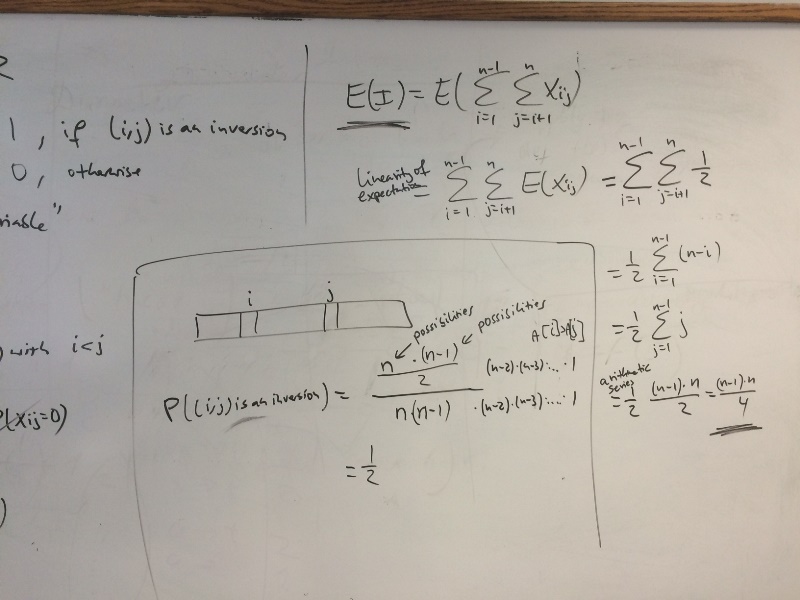 R
1, if (i,j) is an inversion
0, otherwise
riable"
) with i<j
P(Xij=0)
)
E(I) = E( ∑_{i=1}^{n-1} ∑_{j=i+1}^{n} Xij )
linearity of
expectation
= ∑_{i=1}^{n-1} ∑_{j=i+1}^{n} E(Xij) = ∑_{i=1}^{n-1} ∑_{j=i+1}^{n} 1/2
= 1/2 ∑_{i=1}^{n-1} (n-i)
= 1/2 ∑_{j=1}^{n-1} j
arithmetic
series
= 1/2 (n-1)·n/2 = (n-1)·n/4
i j
possibilities possibilities
A[i]>A[j]
n·(n-1)/2 (n-2)·(n-3)·...·1
P((i,j) is an inversion) =
n(n-1) ·(n-2)·(n-3)·...·1
= 1/2